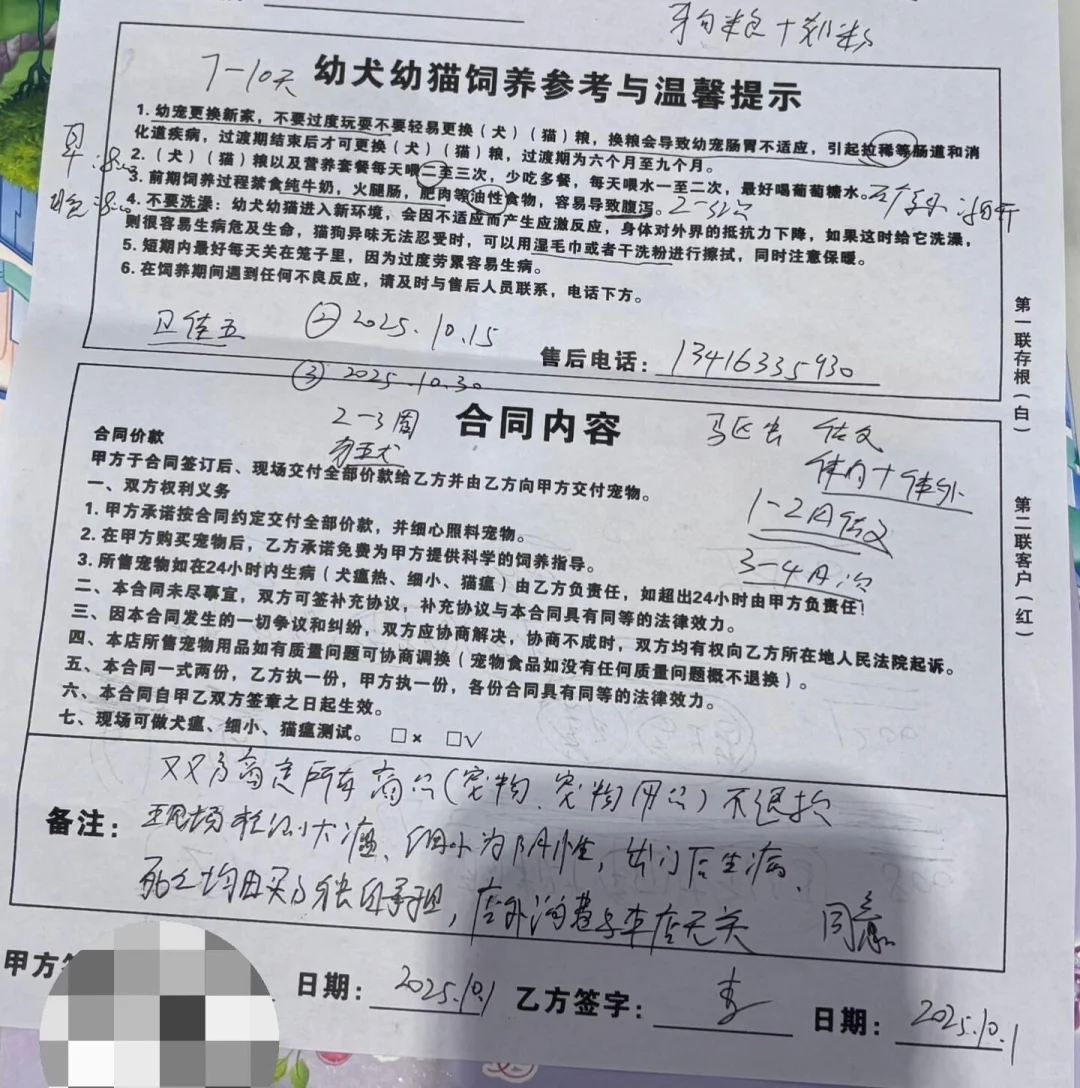 狗粮+奶粉
7-10天
幼犬幼猫饲养参考与温馨提示
1. 幼宠更换新家，不要过度玩耍不要轻易更换（犬）（猫）粮，换粮会导致幼宠肠胃不适应，引起拉稀等肠道和消
化道疾病，过渡期结束后才可更换（犬）（猫）粮，过渡期为六个月至九个月。
2.（犬）（猫）粮以及营养套餐每天喂二至三次，少吃多餐，每天喂水一至二次，最好喝葡萄糖水。
3. 前期饲养过程禁食纯牛奶，火腿肠，肥肉等油性食物，容易导致腹泻。
4. 不要洗澡：幼犬幼猫进入新环境，会因不适应而产生应激反应，身体对外界的抵抗力下降，如果这时给它洗澡，
则很容易生病危及生命，猫狗异味无法忍受时，可以用湿毛巾或者干洗粉进行擦拭，同时注意保暖。
5. 短期内最好每天关在笼子里，因为过度劳累容易生病。
6. 在饲养期间遇到任何不良反应，请及时与售后人员联系，电话下方。
早
晚
卫佳五
② 2025.10.15
售后电话：13416335930
③ 2025.10.30
2-3周
合同内容
体内+体外
1-2月
3-4月
合同价款
甲方于合同签订后、现场交付全部价款给乙方并由乙方向甲方交付宠物。
一、双方权利义务
1. 甲方承诺按合同约定交付全部价款，并细心照料宠物。
2. 在甲方购买宠物后，乙方承诺免费为甲方提供科学的饲养指导。
3. 所售宠物如在24小时内生病（犬瘟热、细小、猫瘟）由乙方负责任，如超出24小时由甲方负责任！
二、本合同未尽事宜，双方可签补充协议，补充协议与本合同具有同等的法律效力。
三、因本合同发生的一切争议和纠纷，双方应协商解决，协商不成时，双方均有权向乙方所在地人民法院起诉。
四、本店所售宠物用品如有质量问题可协商调换（宠物食品如没有任何质量问题概不退换）。
五、本合同一式两份，乙方执一份，甲方执一份，各份合同具有同等的法律效力。
六、本合同自甲乙双方签章之日起生效。
七、现场可做犬瘟、细小、猫瘟测试。 □× □√
第一联存根（白）
第二联客户（红）
双方商定所有商品（宠物、宠物用品）不退换
备注：现场检测犬瘟、细小为阴性，出门后生病、
死亡均由买方独自承担，店外消费与本店无关 同意
甲方
日期：2025.10.1
乙方签字：
日期：2025.10.1